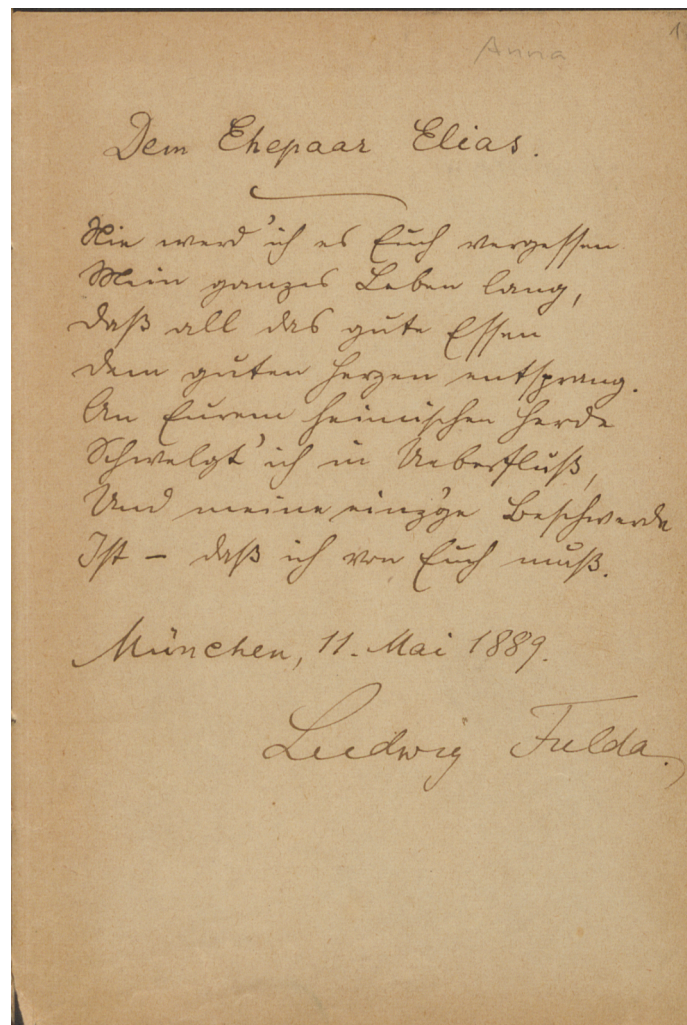 1
Anna
Dem Ehepaar Elias.
Nie werd' ich es Euch vergessen
Mein ganzes Leben lang,
Daß all das gute Essen
Dem guten Herzen entsprang.
An Eurem heimischen Herde
Schwelgt' ich in Ueberfluß,
Und meine einz'ge Beschwerde
Ist – daß ich von Euch muß.
München, 11. Mai 1889.
Ludwig Fulda.